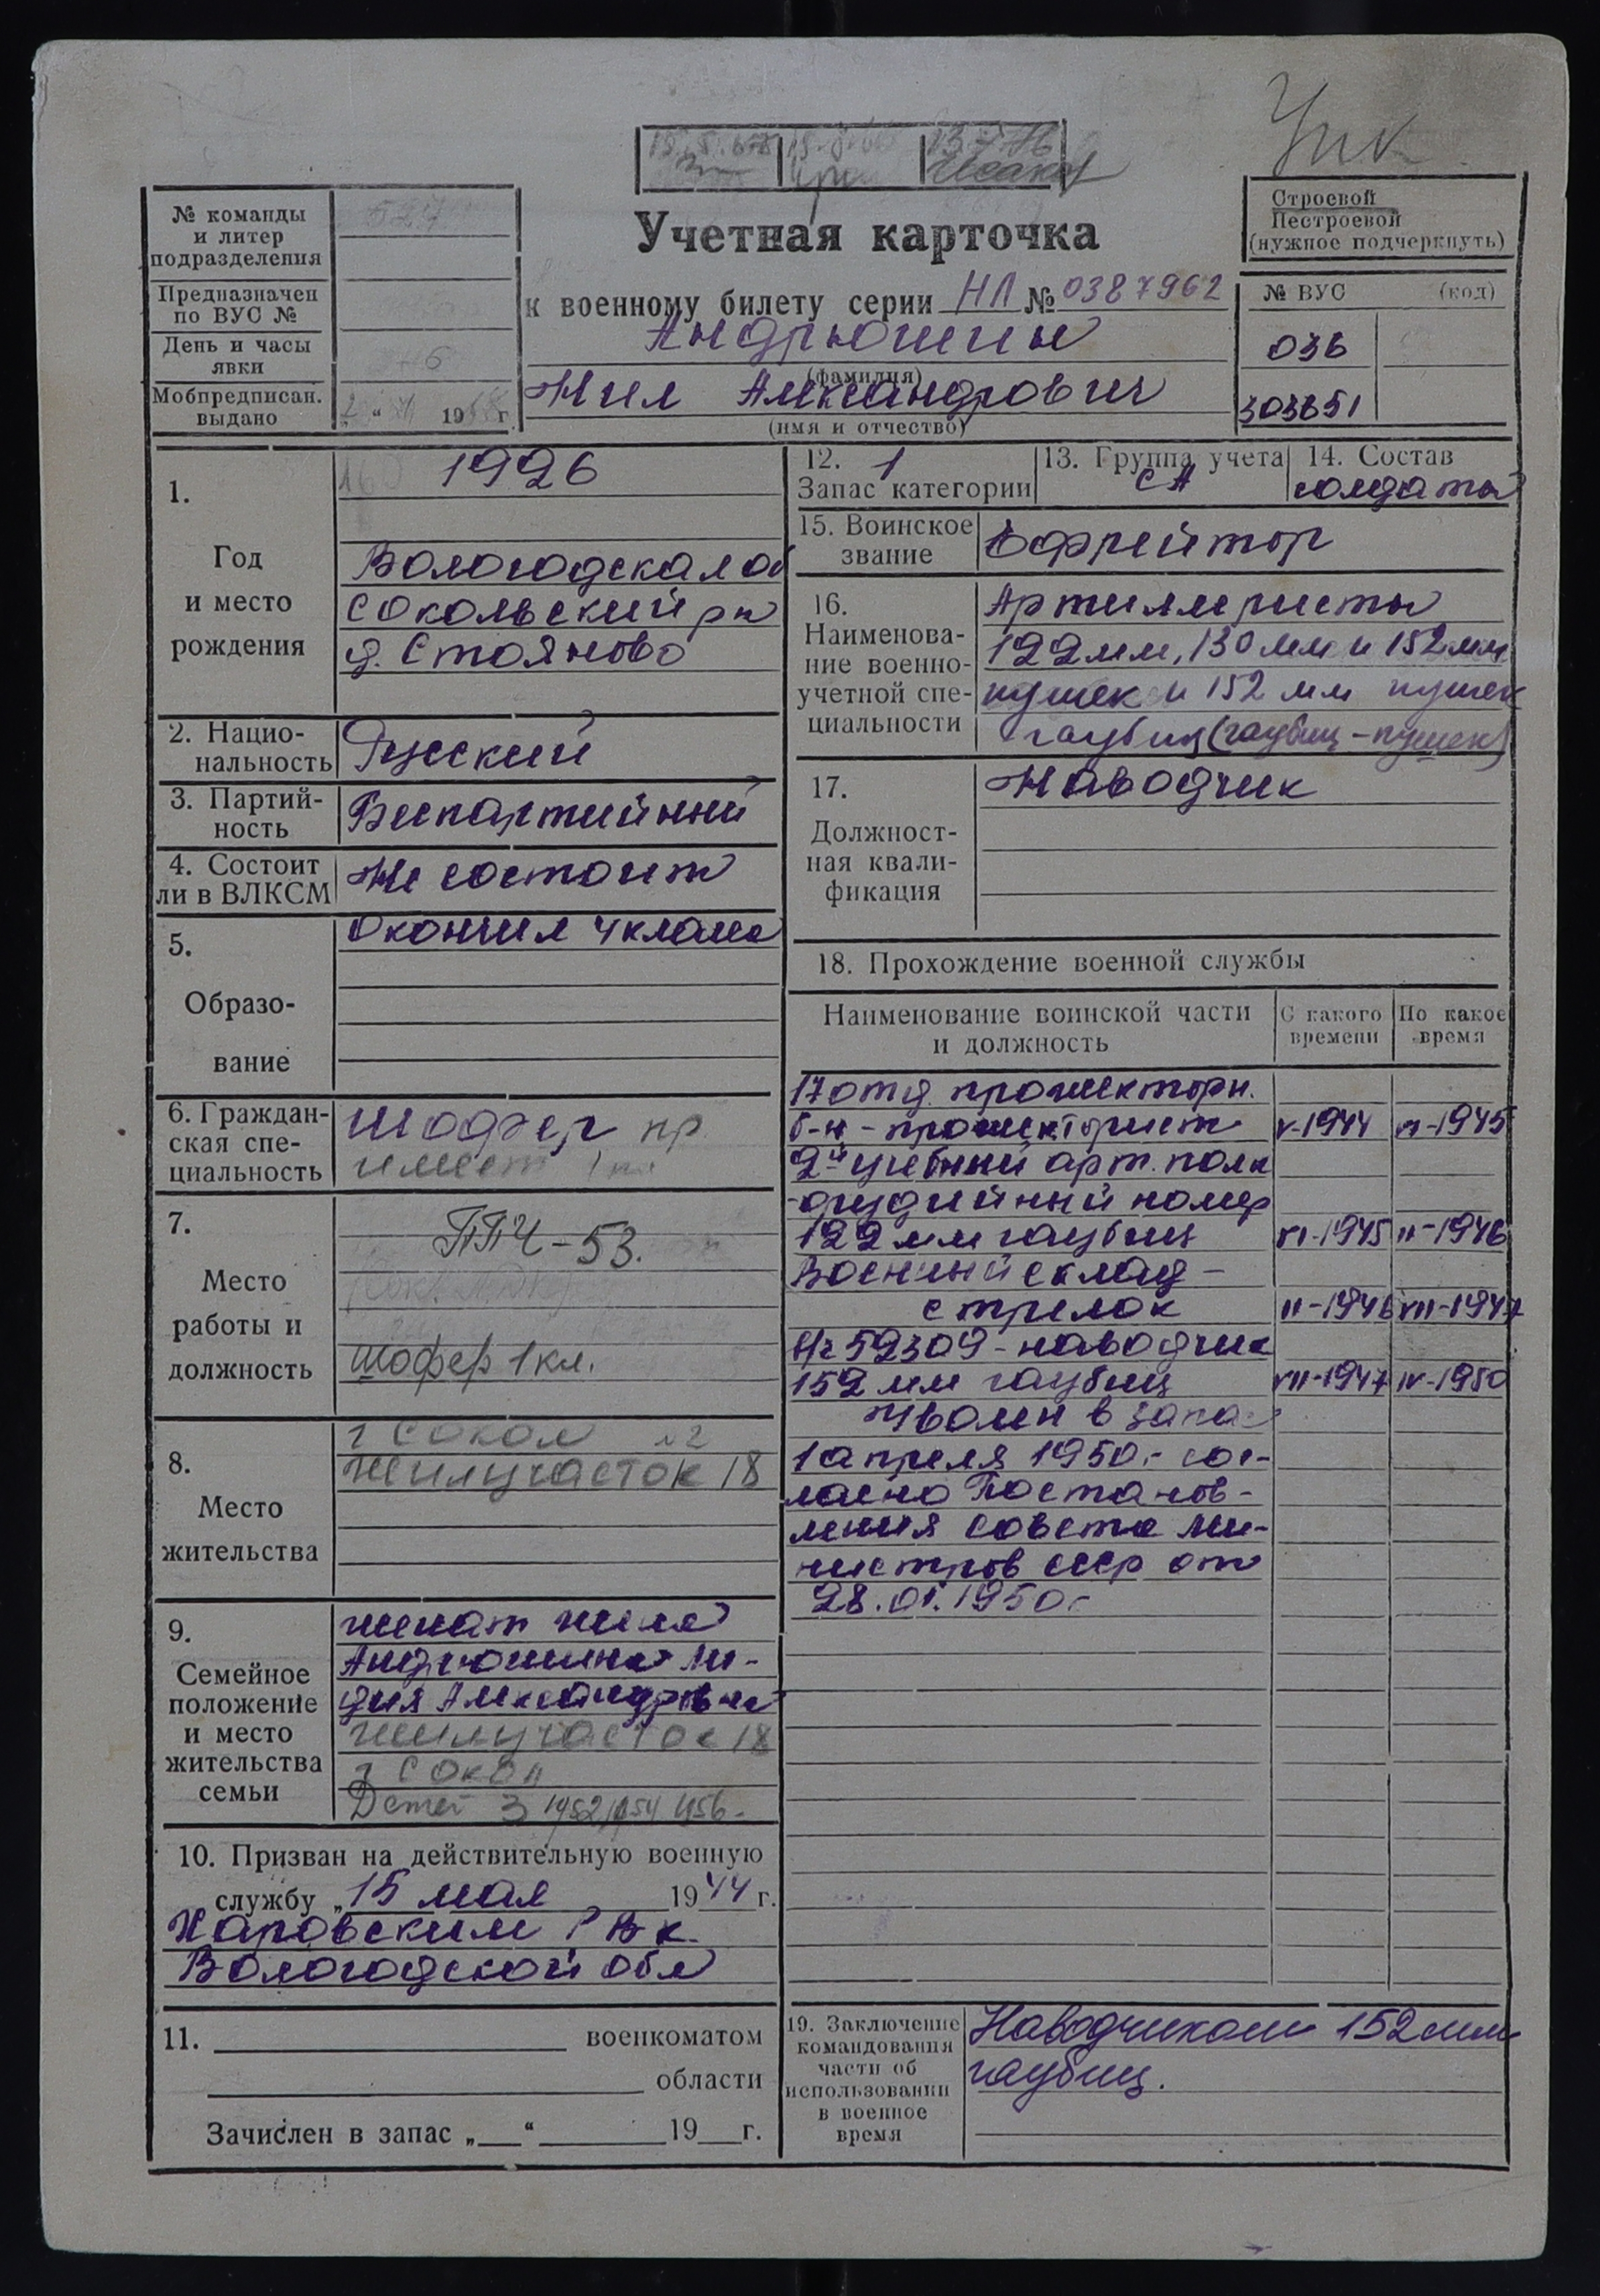 Учетная карточка
к военному билету серии НЛ № 0387962
Андрюшин
(фамилия)
Нил Александрович
(имя и отчество)
№ команды
и литер
подразделения
527
Предназначен
по ВУС №
День и часы
явки
Мобпредписан.
выдано
19 г.
Строевой
Нестроевой
(нужное подчеркнуть)
№ ВУС (код)
036
303651
1.
Год
и место
рождения
1926
Вологодская об
Сокольский рн
д. Стояново
2. Нацио-
нальность
Русский
3. Партий-
ность
Беспартийный
4. Состоит
ли в ВЛКСМ
Не состоит
5.
Образо-
вание
Окончил 4 класса
6. Граждан-
ская спе-
циальность
Шофер пр
имеет 1 кл
7.
Место
работы и
должность
ППЧ-53.
шофер 1 кл.
8.
Место
жительства
г Сокол
Жилучасток 18
9.
Семейное
положение
и место
жительства
семьи
женат жена
Андрюшина Ли-
дия Александровна
жилучасток 18
г Сокол
Детей 3 1952, 1954 1956.
10. Призван на действительную военную
службу „15 мая 1944 г.
Харовским РВк.
Вологодской обл
11. военкоматом
области
Зачислен в запас „ “ 19 г.
12. 1
Запас категории
13. Группа учета
СА
14. Состав
солдаты
15. Воинское
звание
Ефрейтор
16.
Наименова-
ние военно-
учетной спе-
циальности
Артиллеристы
122мм, 130 мм и 152мм
пушек и 152 мм пушек
гаубиц (гаубиц-пушек)
17.
Должност-
ная квали-
фикация
Наводчик
18. Прохождение военной службы
Наименование воинской части
и должность
С какого
времени
По какое
время
17 отд. прожекторн.
б-н - прожекторист V-1944 VI-1945
2й учебный арт. полк
орудийный номер
122 мм гаубиц VI-1945 II-1946
Военный склад -
стрелок II-1946 VII-1947
в/ч 52309 - наводчик
152 мм гаубиц VII-1947 IV-1950
Уволен в запас
1 апреля 1950г. сог-
ласно Постанов-
ления Совета Ми-
нистров СССР от
28.01.1950г
19. Заключение
командования
части об
использовании
в военное
время
Наводчиком 152мм
гаубиц.